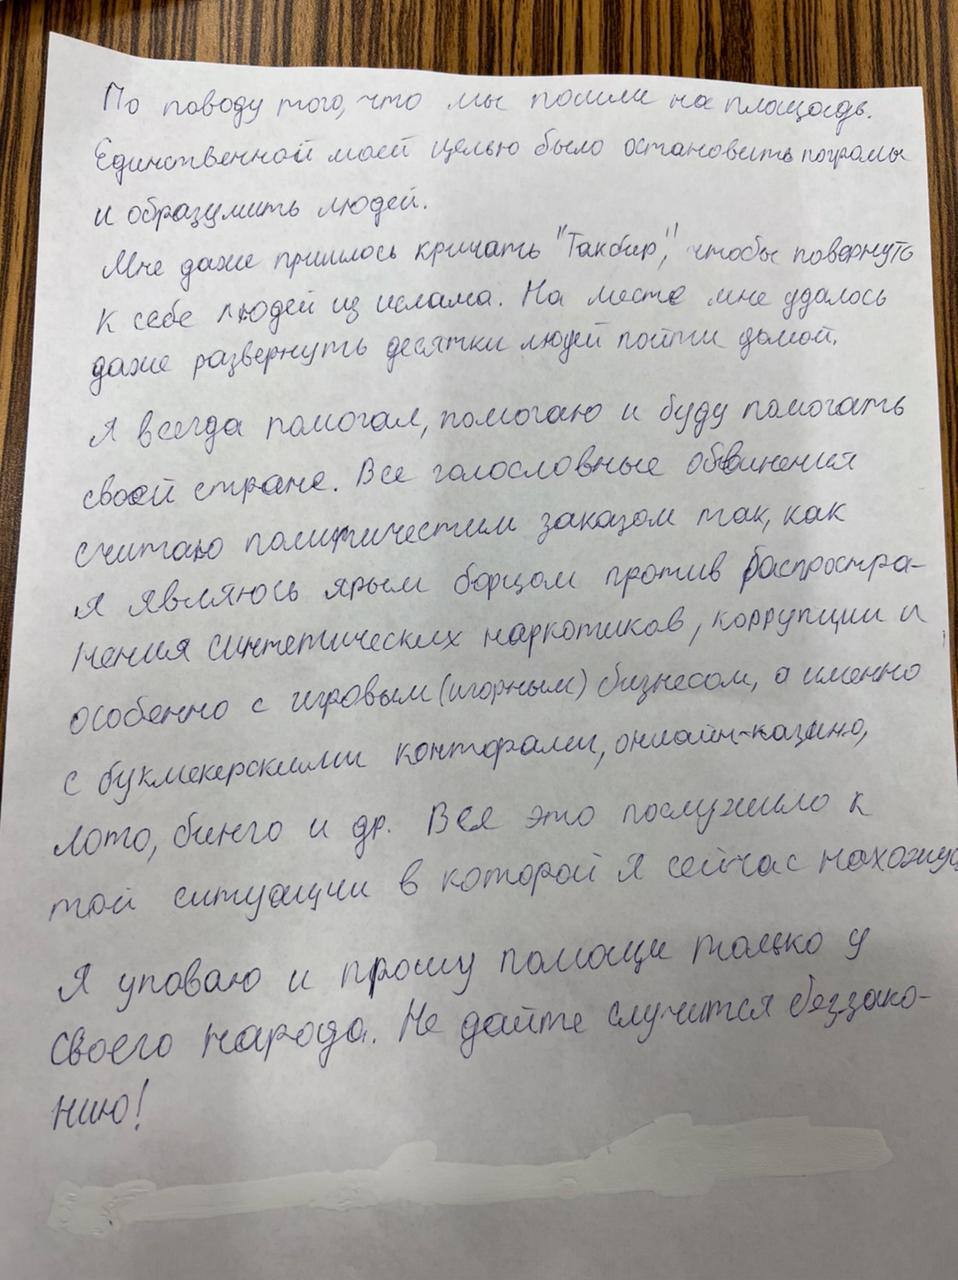 По поводу того, что мы пошли на площадь.
Единственной моей целью было остановить погромы
и образумить людей.
Мне даже пришлось кричать "Такбир", чтобы повернуть
к себе людей из ислама. На месте мне удалось
даже развернуть десятки людей пойти домой.
Я всегда помогал, помогаю и буду помогать
своей стране. Все голословные обвинения
считаю политичестим заказом так, как
я являюсь ярым борцом против распростра-
нения синтетических наркотиков, коррупции и
особенно с игровым (игорным) бизнесом, а именно
с букмекерскими конторами, онлайн-казино,
лото, бинго и др. Все это послужило к
той ситуации в которой я сейчас нахожусь
Я уповаю и прошу помощи только у
своего народа. Не дайте случится беззако-
нию!